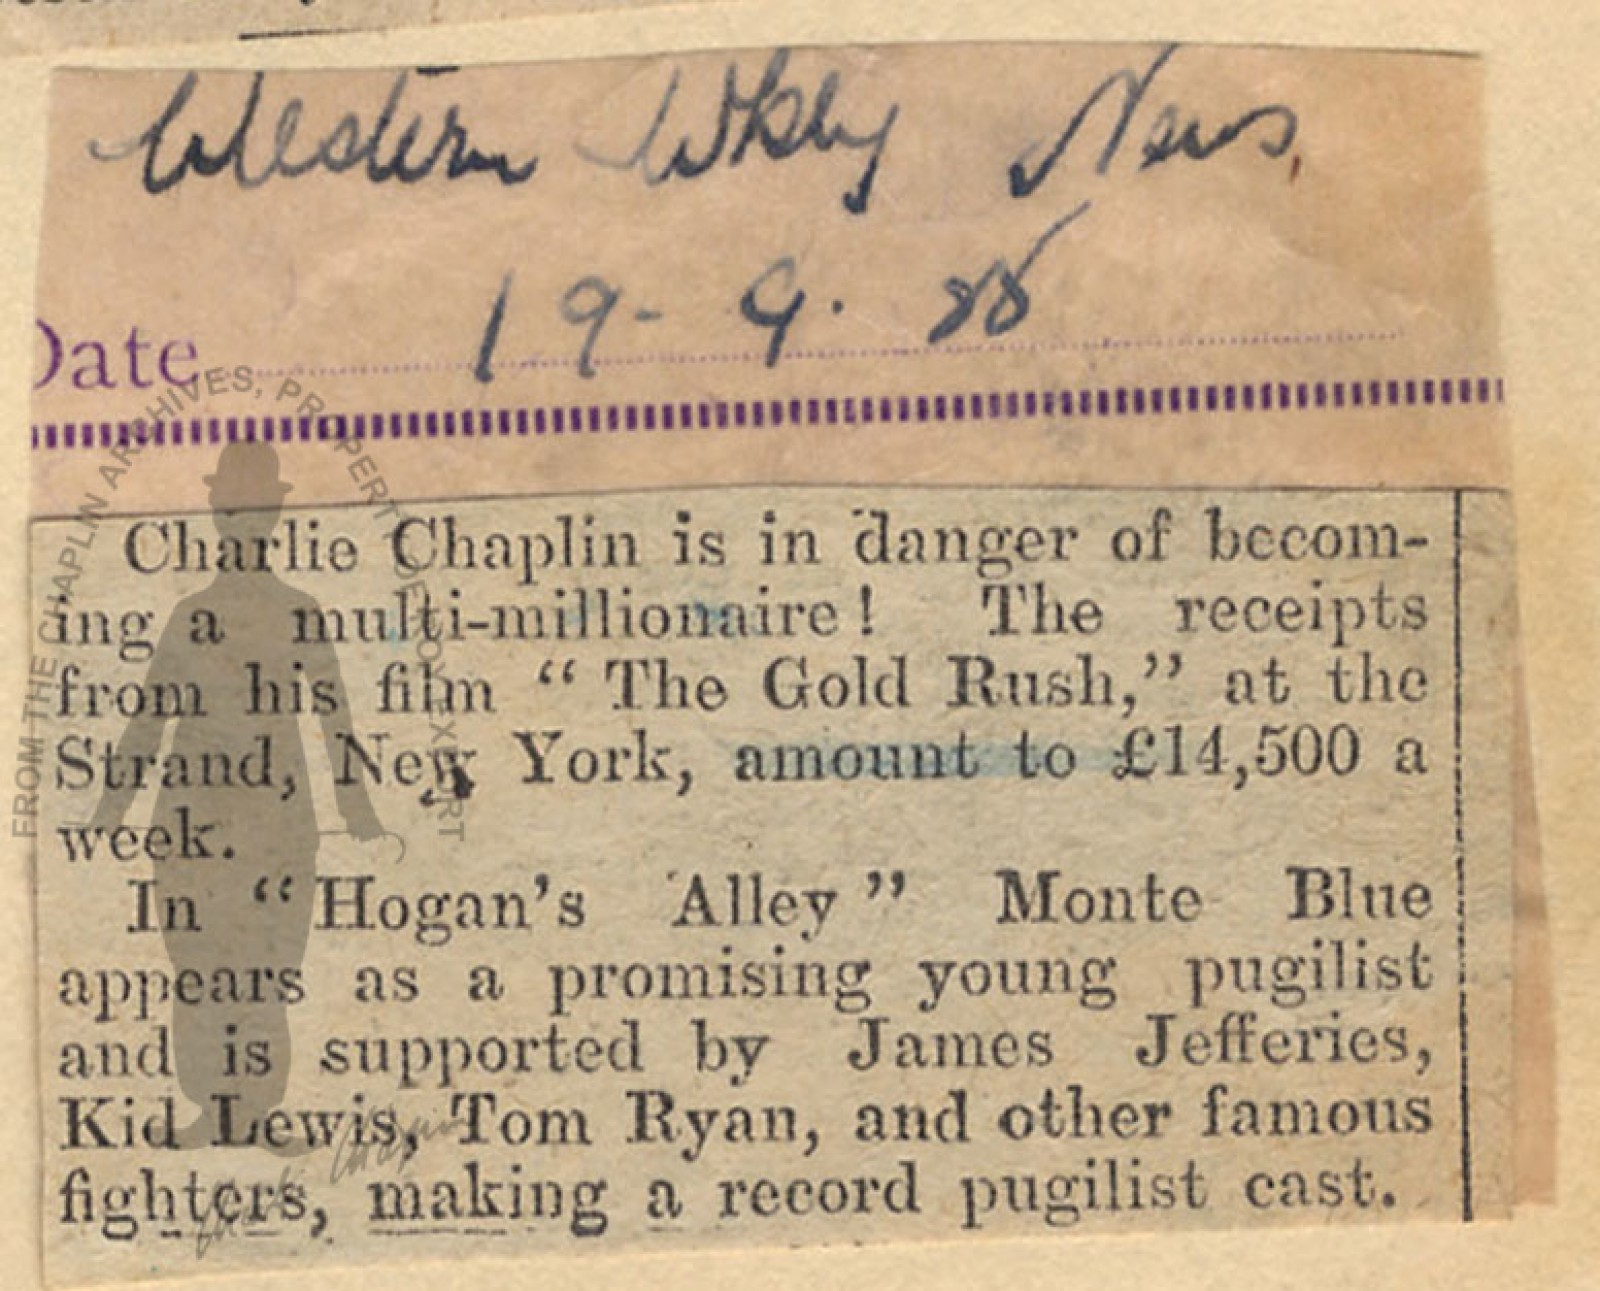 Western Wkly News
19-9.25
Date
Charlie Chaplin is in danger of becom-
ing a multi-millionaire! The receipts
from his film “ The Gold Rush,” at the
Strand, New York, amount to £14,500 a
week.
In “ Hogan’s Alley ” Monte Blue
appears as a promising young pugilist
and is supported by James Jefferies,
Kid Lewis, Tom Ryan, and other famous
fighters, making a record pugilist cast.
FROM THE CHAPLIN ARCHIVES, PROPERTY OF ROY EXPORT